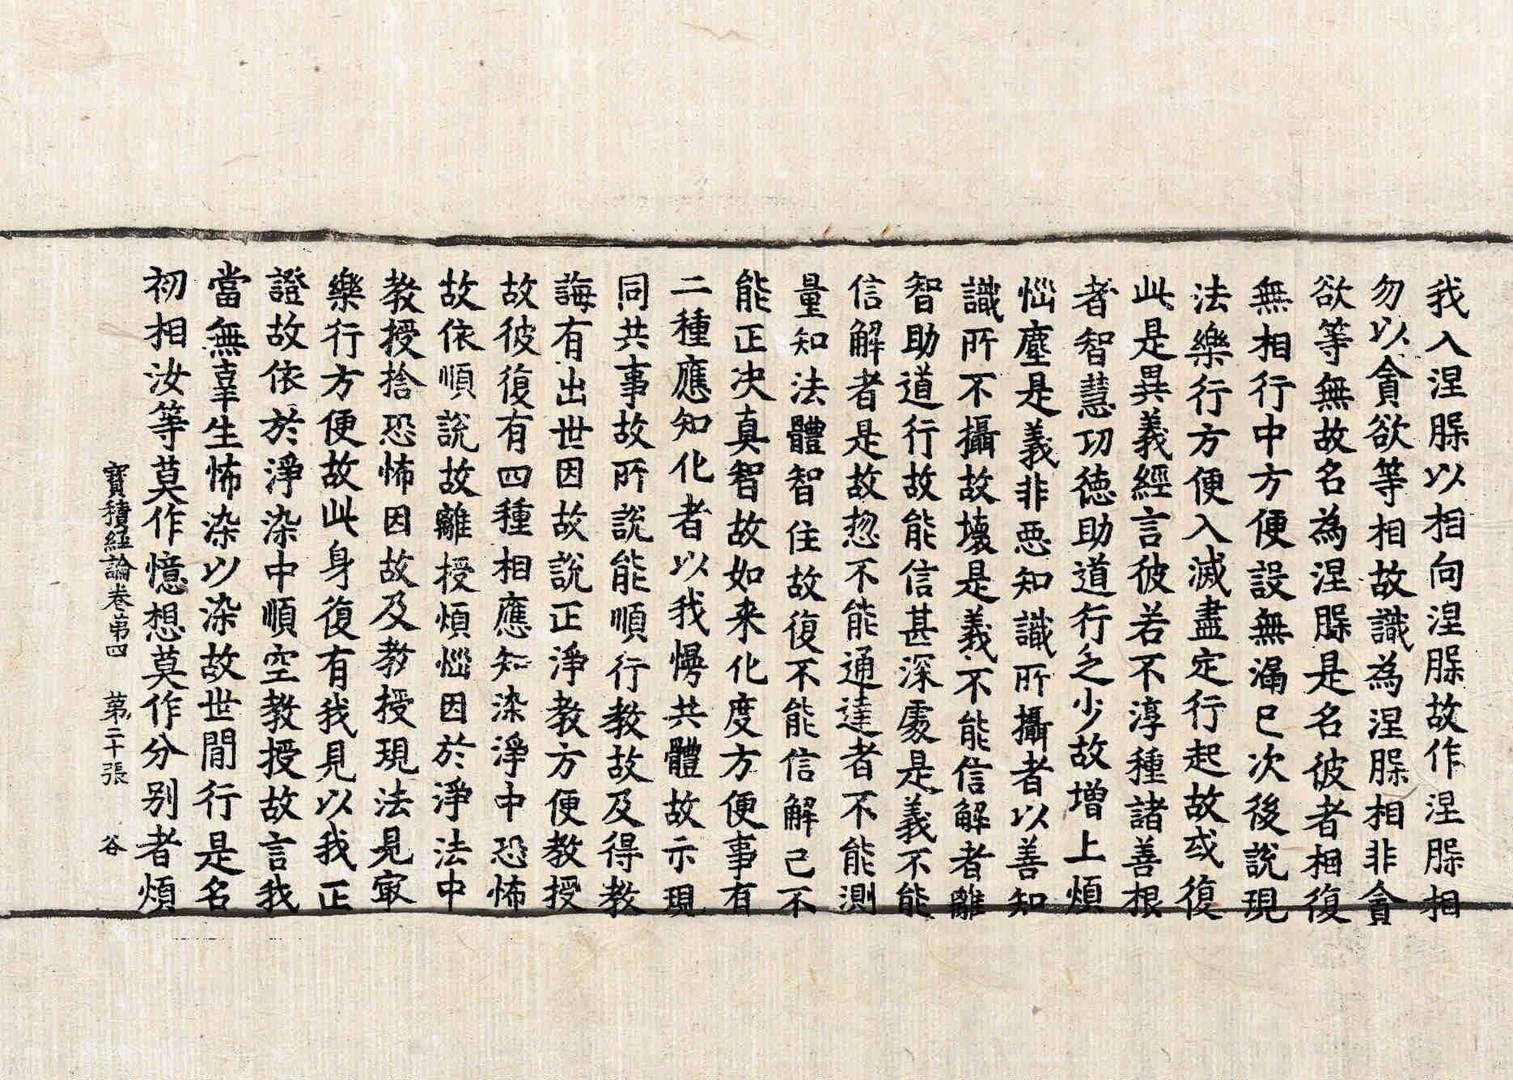 我入涅槃以相向涅槃故作涅槃相
勿以貪欲等相故識為涅槃相非貪
欲等無故名為涅槃是名彼者相復
無相行中方便設無漏已次後說現
法樂行方便入滅盡定行起故或復
此是異義經言彼若不淳種諸善根
者智慧功徳助道行乏少故增上煩
惱塵是義非惡知識所攝者以善知
識所不攝故壞是義不能信解者離
智助道行故能信甚深處是義不能
信解者是故惣不能通達者不能測
量知法體智住故復不能信解己不
能正决真智故如来化度方便事有
二種應知化者以我慢共體故示現
同共事故所說能順行教故及得教
誨有出世因故說正淨教方便教授
故彼復有四種相應知染淨中恐怖
故依順說故離授煩惱因於淨法中
教授捨恐怖因故及教授現法見㝡
樂行方便故此身復有我見以我正
證故依於淨染中順空教授故言我
當無辜生怖染以染故世間行是名
初相汝等莫作憶想莫作分別者煩
寶積經論卷第四　第二十張　谷